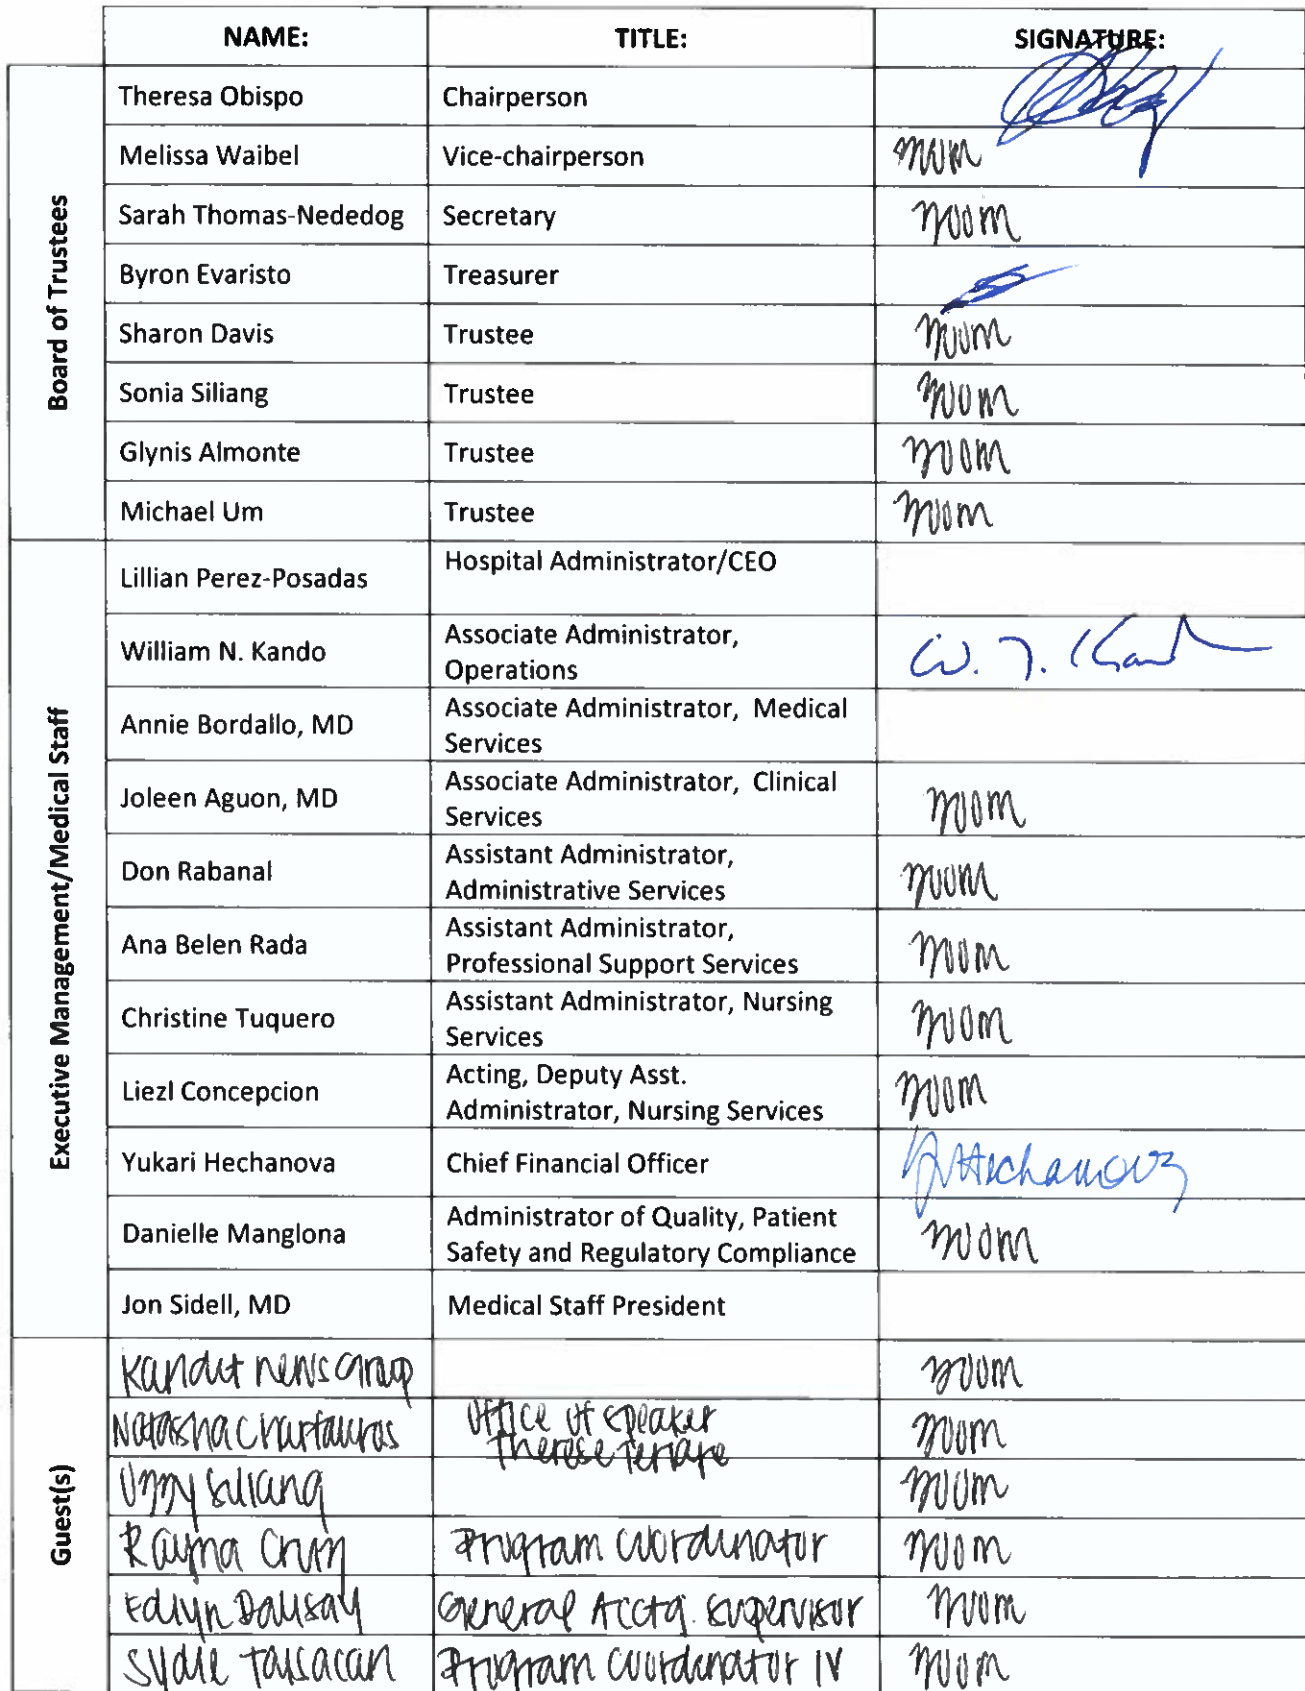 NAME: TITLE: SIGNATURE:
Board of Trustees
Theresa Obispo Chairperson
Melissa Waibel Vice-chairperson zoom
Sarah Thomas-Nededog Secretary zoom
Byron Evaristo Treasurer
Sharon Davis Trustee zoom
Sonia Siliang Trustee zoom
Glynis Almonte Trustee zoom
Michael Um Trustee zoom
Executive Management/Medical Staff
Lillian Perez-Posadas Hospital Administrator/CEO
William N. Kando Associate Administrator,
Operations W. N. Kand
Annie Bordallo, MD Associate Administrator, Medical
Services
Joleen Aguon, MD Associate Administrator, Clinical
Services zoom
Don Rabanal Assistant Administrator,
Administrative Services zoom
Ana Belen Rada Assistant Administrator,
Professional Support Services zoom
Christine Tuquero Assistant Administrator, Nursing
Services zoom
Liezl Concepcion Acting, Deputy Asst.
Administrator, Nursing Services zoom
Yukari Hechanova Chief Financial Officer YHechanova
Danielle Manglona Administrator of Quality, Patient
Safety and Regulatory Compliance zoom
Jon Sidell, MD Medical Staff President
Guest(s)
Kandit news group zoom
Natasha Charfauros Office of Speaker
Therese Terlaje zoom
Siliang zoom
Rayna Cruz Program Coordinator zoom
Edlyn Dalisay General Acctg. Supervisor zoom
Sydie Taisacan Program Coordinator IV zoom